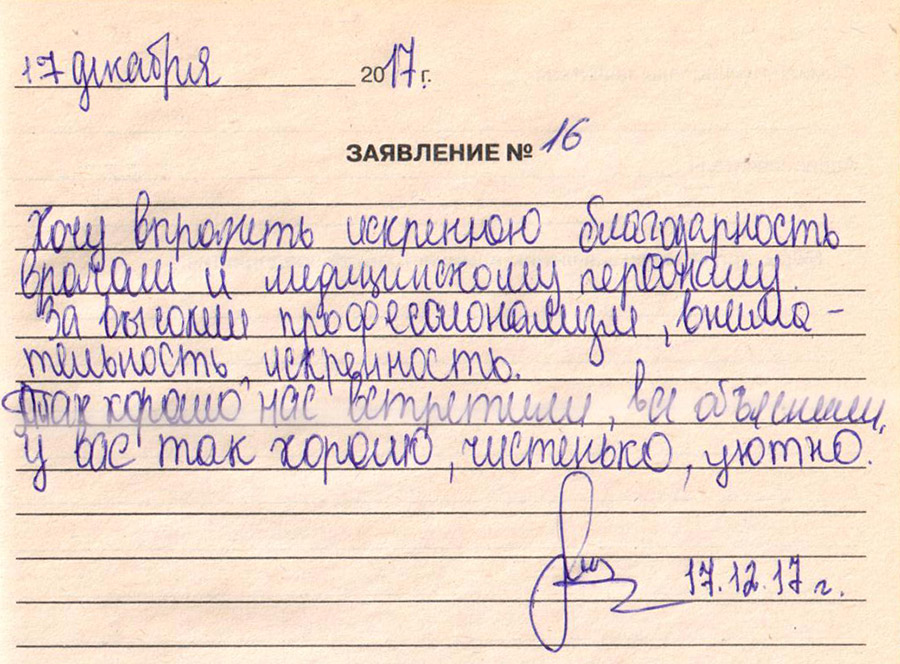 17 декабря 2017 г.
ЗАЯВЛЕНИЕ № 16
Хочу впразить искреннюю благодарность
врачам и медицинскому персоналу.
За высокий профессионализм, внима-
тельность, искренность.
Так хорошо нас встретили, все объяснили,
у вас так хорошо, чистенько, уютно.
17.12.17 г.